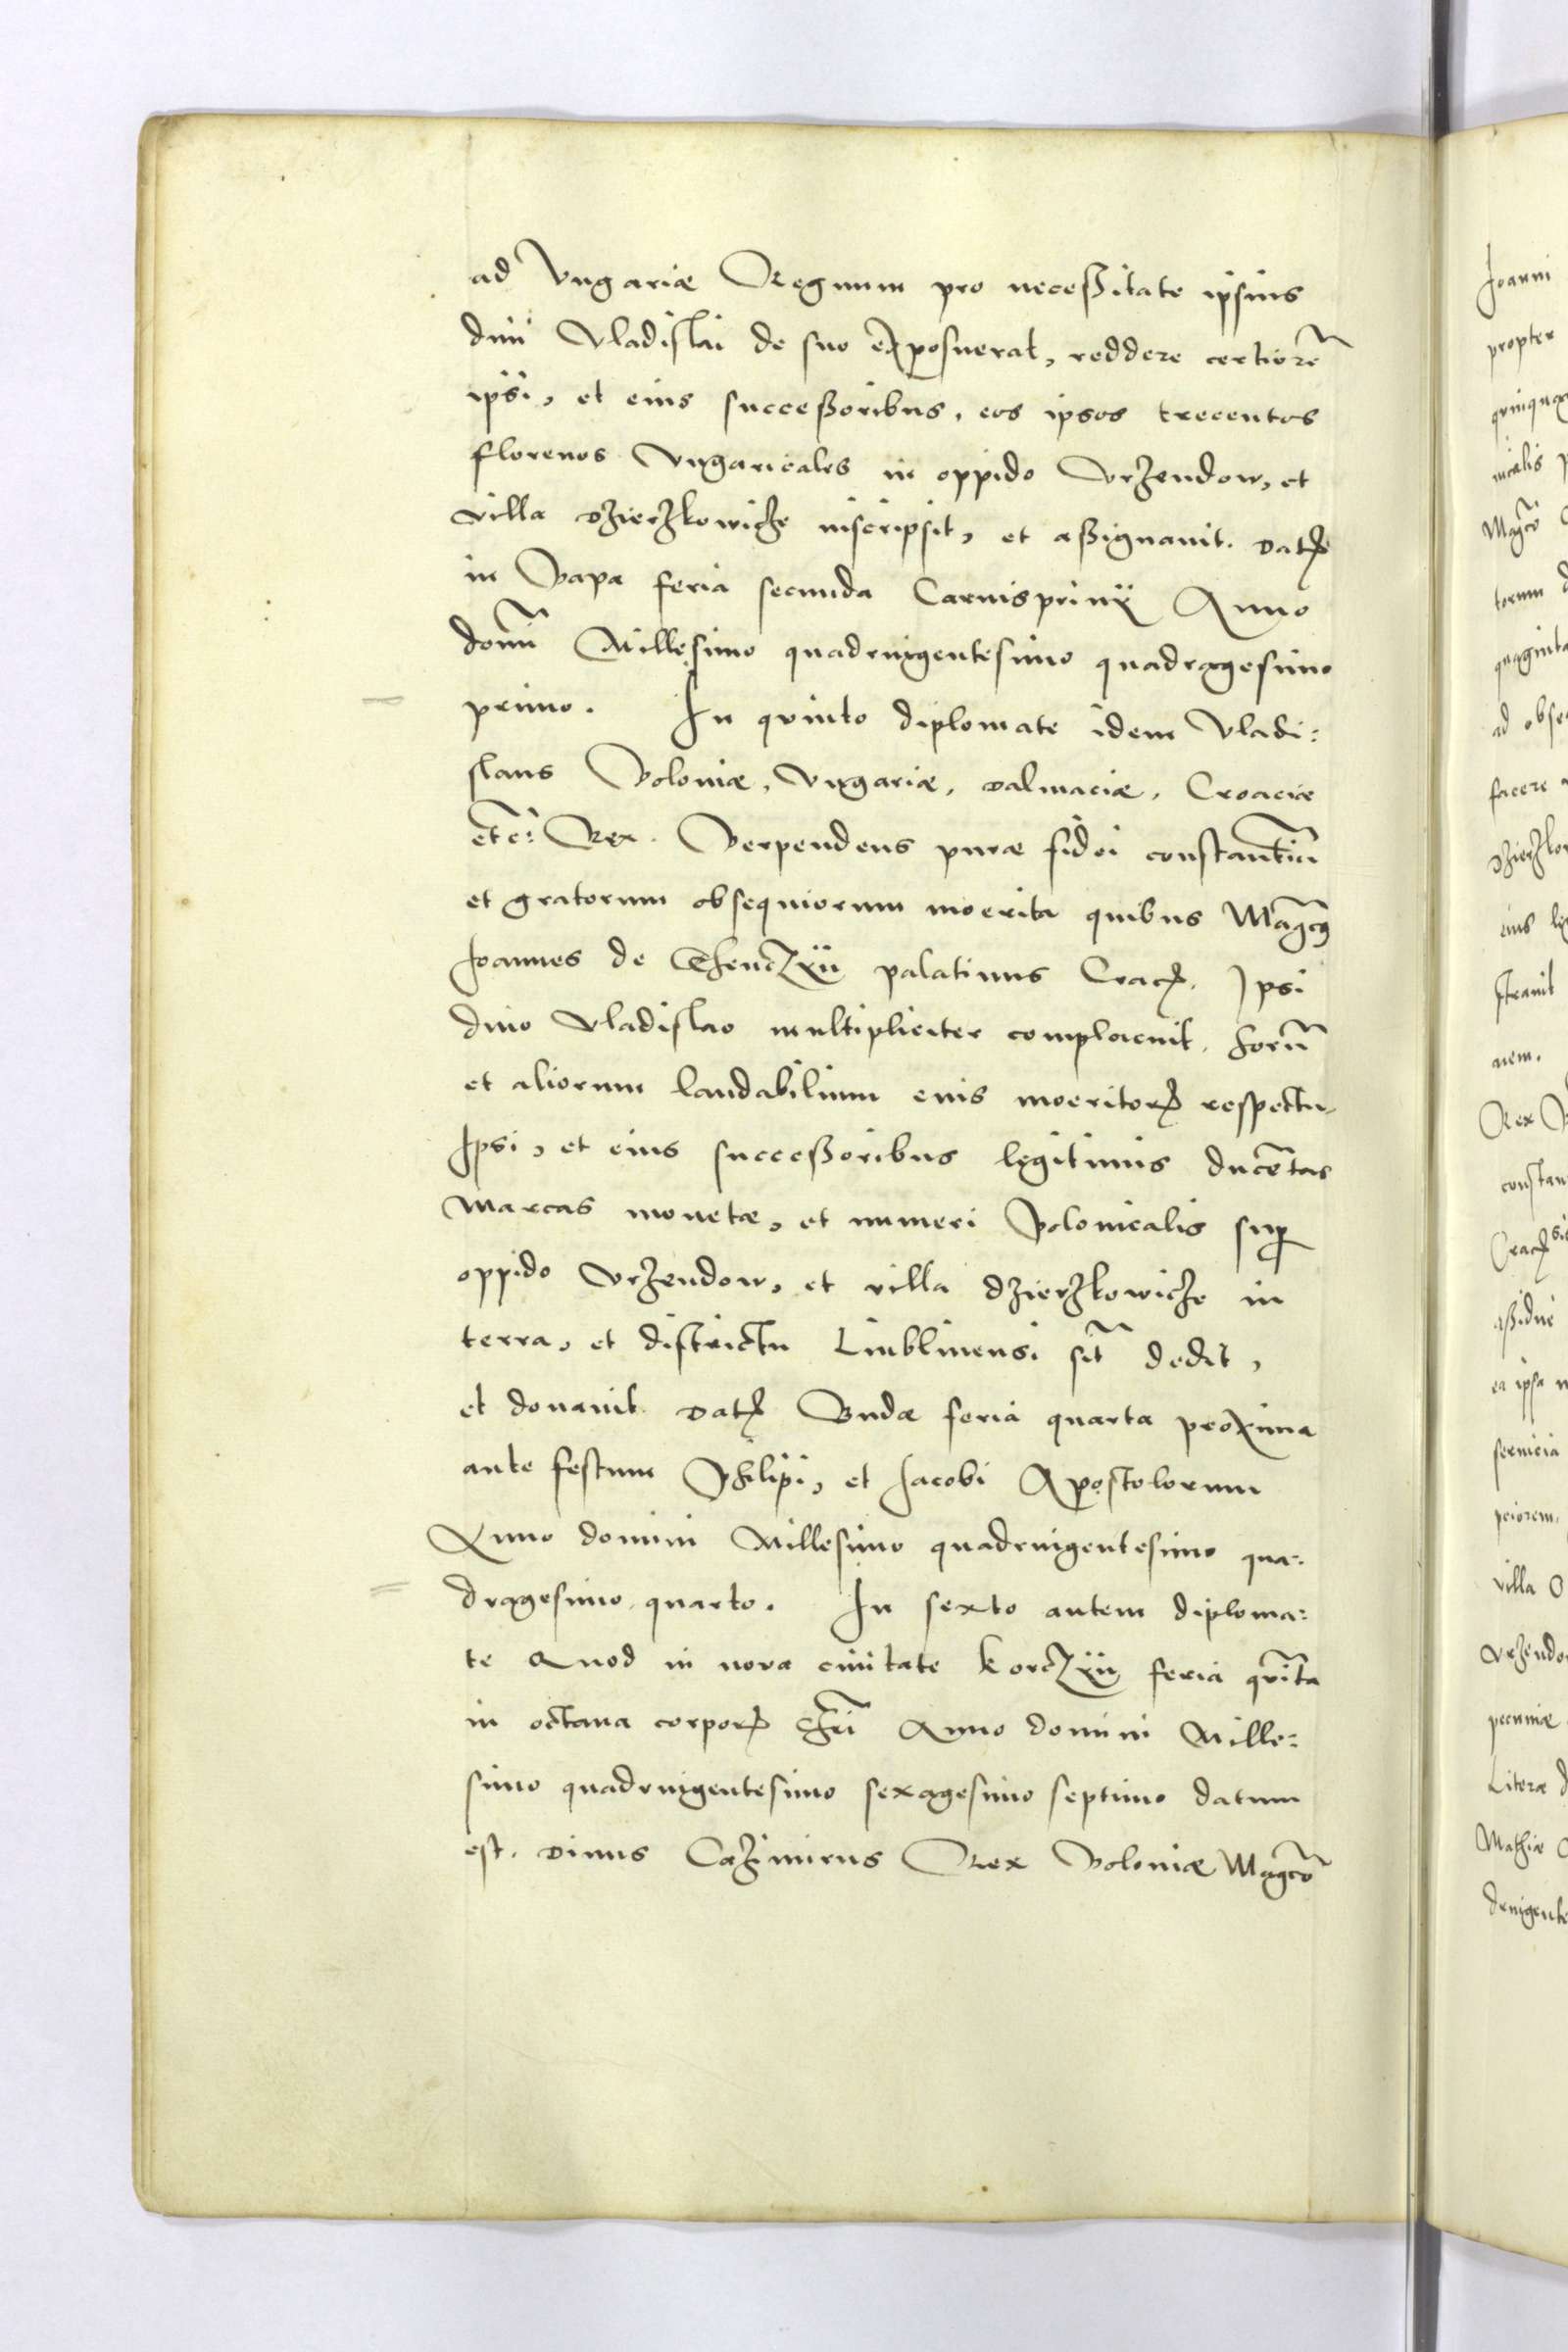 ad Vngariæ Regnum pro neceßitate ipsius
diui Vladislai de suo exposuerat, reddere certiorẽ
ipsi, et eius succeßoribus, eos ipsos trecentos
florenos Vngaricales in oppido Vrzendow, et
villa Dzierzkowicze inscripsit, et aßignauit. Datꝭ
in Papa feria secunda Carnispriuÿ Anno
domĩ Millesimo quadringentesimo quadragesimo
primo. In quinto diplomate idem Vladi:
slaus Poloniæ, Vngariæ, Dalmaciæ, Croaciæ
etc̃: Rex. Perpendens puræ fidei constantiã
et gratorum obsequiorum moerita quibus Magc̃us
Joannes de Thenczÿn palatinus Cracꝭ. Ipsi
diuo Vladislao multipliciter complacuit. Horũ
et aliorum laudabilium euis moeritorꝭ respectu
Ipsi, et eius succeßoribus legitimis ducẽtas
marcas monetæ, et numeri Polonicalis sup
oppido Vrzendow, et villa Dzierzkowicze in
terra, et districtu Liublinensi sit̃ dedit,
et donauit. Datꝭ Budæ feria quarta proxima
ante festum Philipi, et Jacobi Apostolorum
Anno domini Millesimo quadringentesimo qua:
dragesimo quarto. In sexto autem diploma:
te Quod in noua ciuitate Korczÿn feria quĩta
in octaua corporꝭ Chr̃i Anno domini Mille:
simo quadringentesimo sexagesimo septimo datum
est. Diuus Cazimirus Rex Poloniæ Magc̃o
Joanni
propter
nicalis
Magc̃o
torum
ad obse
facere
Dzierzkow
eius
nem.
Rex
constan
Cracꝭ
aßidue
ea ipsa
seruicia
villa
Vrzendow
pecuniæ
Literæ
Mathiæ